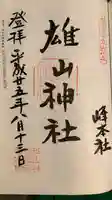 峰本社
雄山神社
登拝 平成廿五年八月十三日